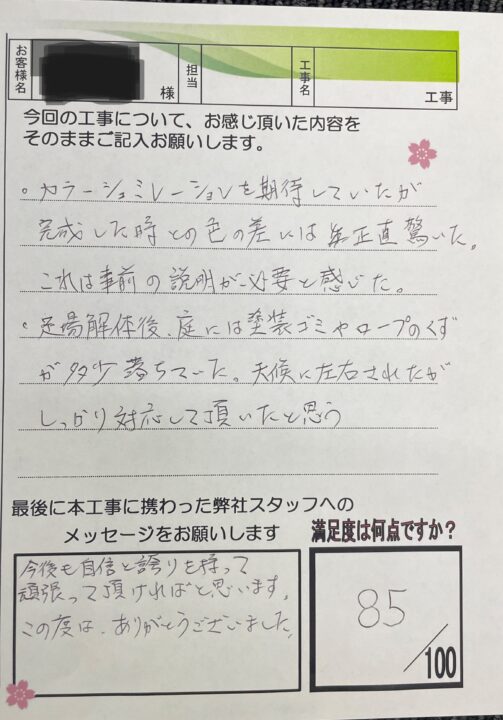 お客様名
様
担当
工事名
工事
今回の工事について、お感じ頂いた内容を
そのままご記入お願いします。
。カラーシュミレーションを期待していたが
完成した時との色の差には 正直驚いた。
これは事前の説明が必要と感じた。
。足場解体後、庭には塗装ゴミやロープのくず
が多少落ちていた。天候に左右されたが
しっかり対応して頂いたと思う
最後に本工事に携わった弊社スタッフへの
メッセージをお願いします
今後も自信と誇りを持って
頑張って頂ければと思います。
この度は、ありがとうございました。
満足度は何点ですか？
85
/100